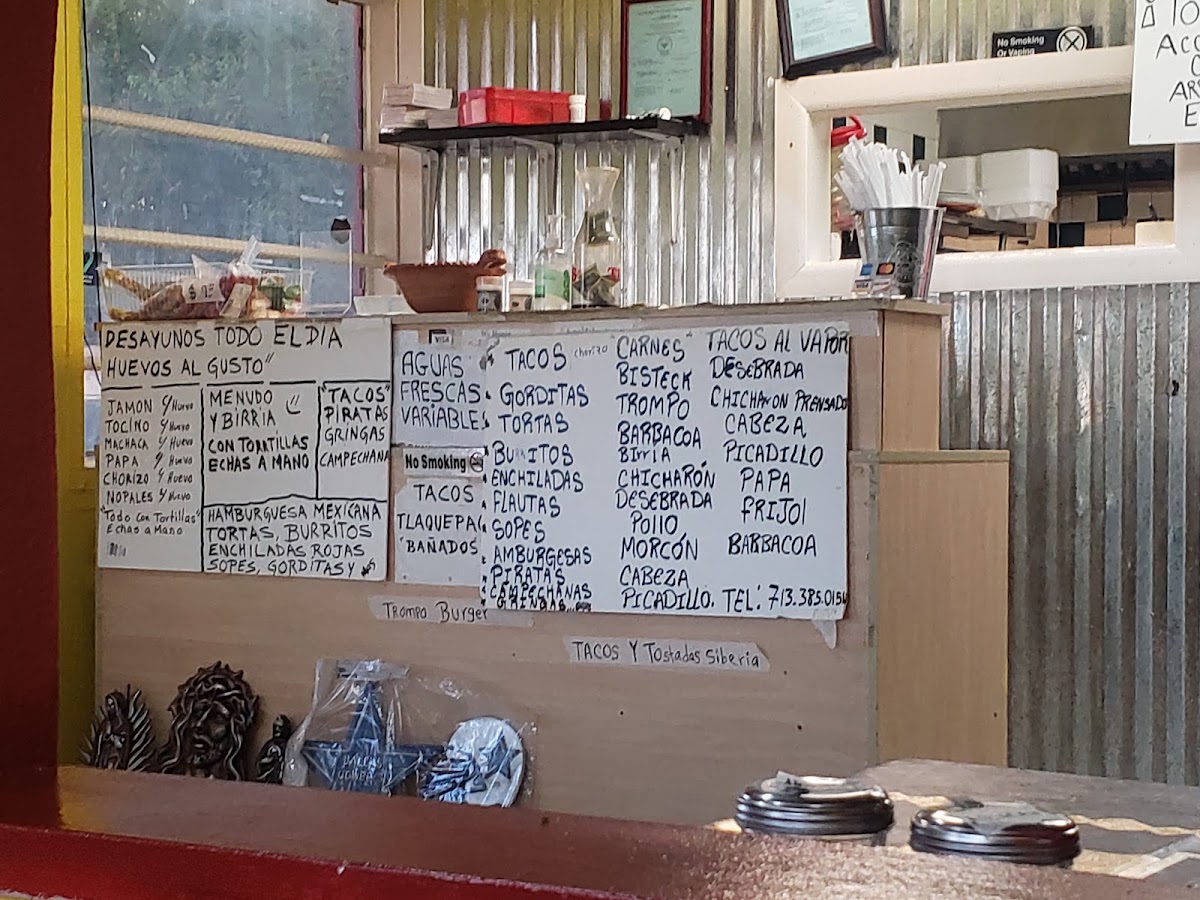 No Smoking
Or Vaping
DESAYUNOS TODO EL DIA
HUEVOS AL GUSTO"
JAMON c/Huevo
TOCINO c/Huevo
MACHACA c/Huevo
PAPA c/Huevo
CHORIZO c/Huevo
NOPALES c/Huevo
"Todo Con Tortillas"
Echas a Mano
MENUDO
Y BIRRIA
CON TORRTILLAS
ECHAS A MANO
"TACOS"
PIRATAS
GRINGAS
CAMPECHANA
HAMBURGUESA MEXICANA
TORTAS, BURRITOS
ENCHILADAS ROJAS
SOPES, GORDITAS Y
VISA
AGUAS
FRESCAS
VARIABLES
No Smoking
TACOS
TLAQUEPA
"BAÑADOS
TACOS chorizo
GORDITAS
TORTAS
BURRITOS
ENCHILADAS
FLAUTAS
SOPES
AMBURGESAS
PIRATAS
CAMPECHANAS
GRINGAS
"CARNES"
BISTECK
TROMPO
BARBACOA
BIrriA
CHICHARÓN
DESEBRADA
POllO
MORCÓN
CABEZA
PICADILLO.
TACOS AL VAPOR
DESEBRADA
CHICHARON PRENSADO
CABEZA
PICADILLO
PAPA
FRIJOl
BARBACOA
TEL: 713.385.0156
Trompo Burger
TACOS Y Tostadas Siberia
VISA